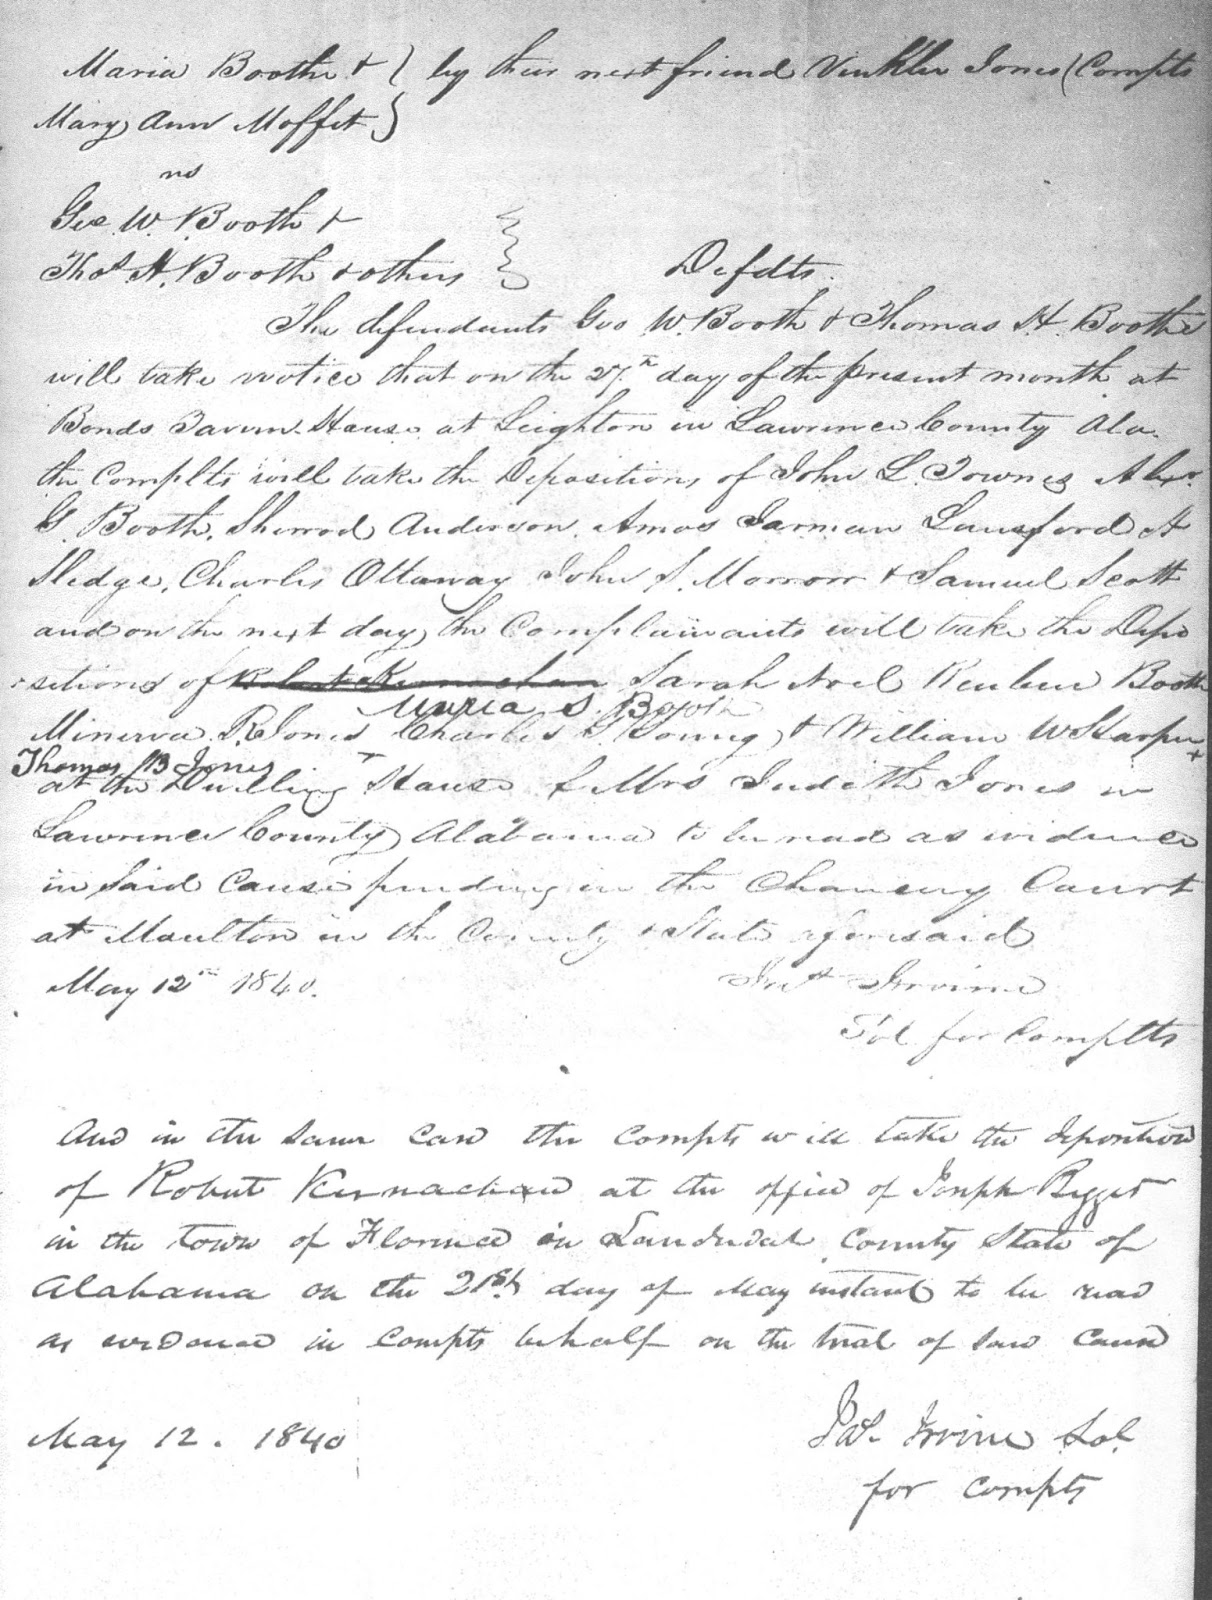 Maria Booth & } by their next friend Vinkler Jones (Compts
Mary Ann Moffet }
vs
Geo. W. Booth &
Thos. H. Booth & others } Defdts.
The defendants Geo W. Booth & Thomas H. Booth
will take notice that on the 27th day of the present month at
Bonds Tavern House at Leighton in Lawrence County Ala.
the Complts will take the Depositions of John L. Townes Alexr.
G. Booth, Sherrod Anderson Amos Jarman Lunsford A
Sledge, Charles Ottaway John S. Morrow & Samuel Scott
and on the next day the Complainants will take the Depo
sitions of Robert Kernachan Sarah Noel Reuben Booth
Maria S. Booth
Minerva R Jones Charles G Young & William W Harper &
Thomas B Jones
at the Dwelling House of Mrs Judith Jones in
Lawrence County Alabama to be read as evidence
in said cause pending in the Chancery Court
at Moulton in the County & State aforesaid
May 12th 1840. Jas Irvine
Sol for Complts
And in the same case the compts will take the deposition
of Robert Kernachan at the office of Joseph Bigger
in the town of Florence in Lauderdale County State of
Alabama on the 21st day of May instant to be read
as evidence in Compts behalf on the trial of said cause
May 12. 1840 Jas. Irvine Sol.
for Compts